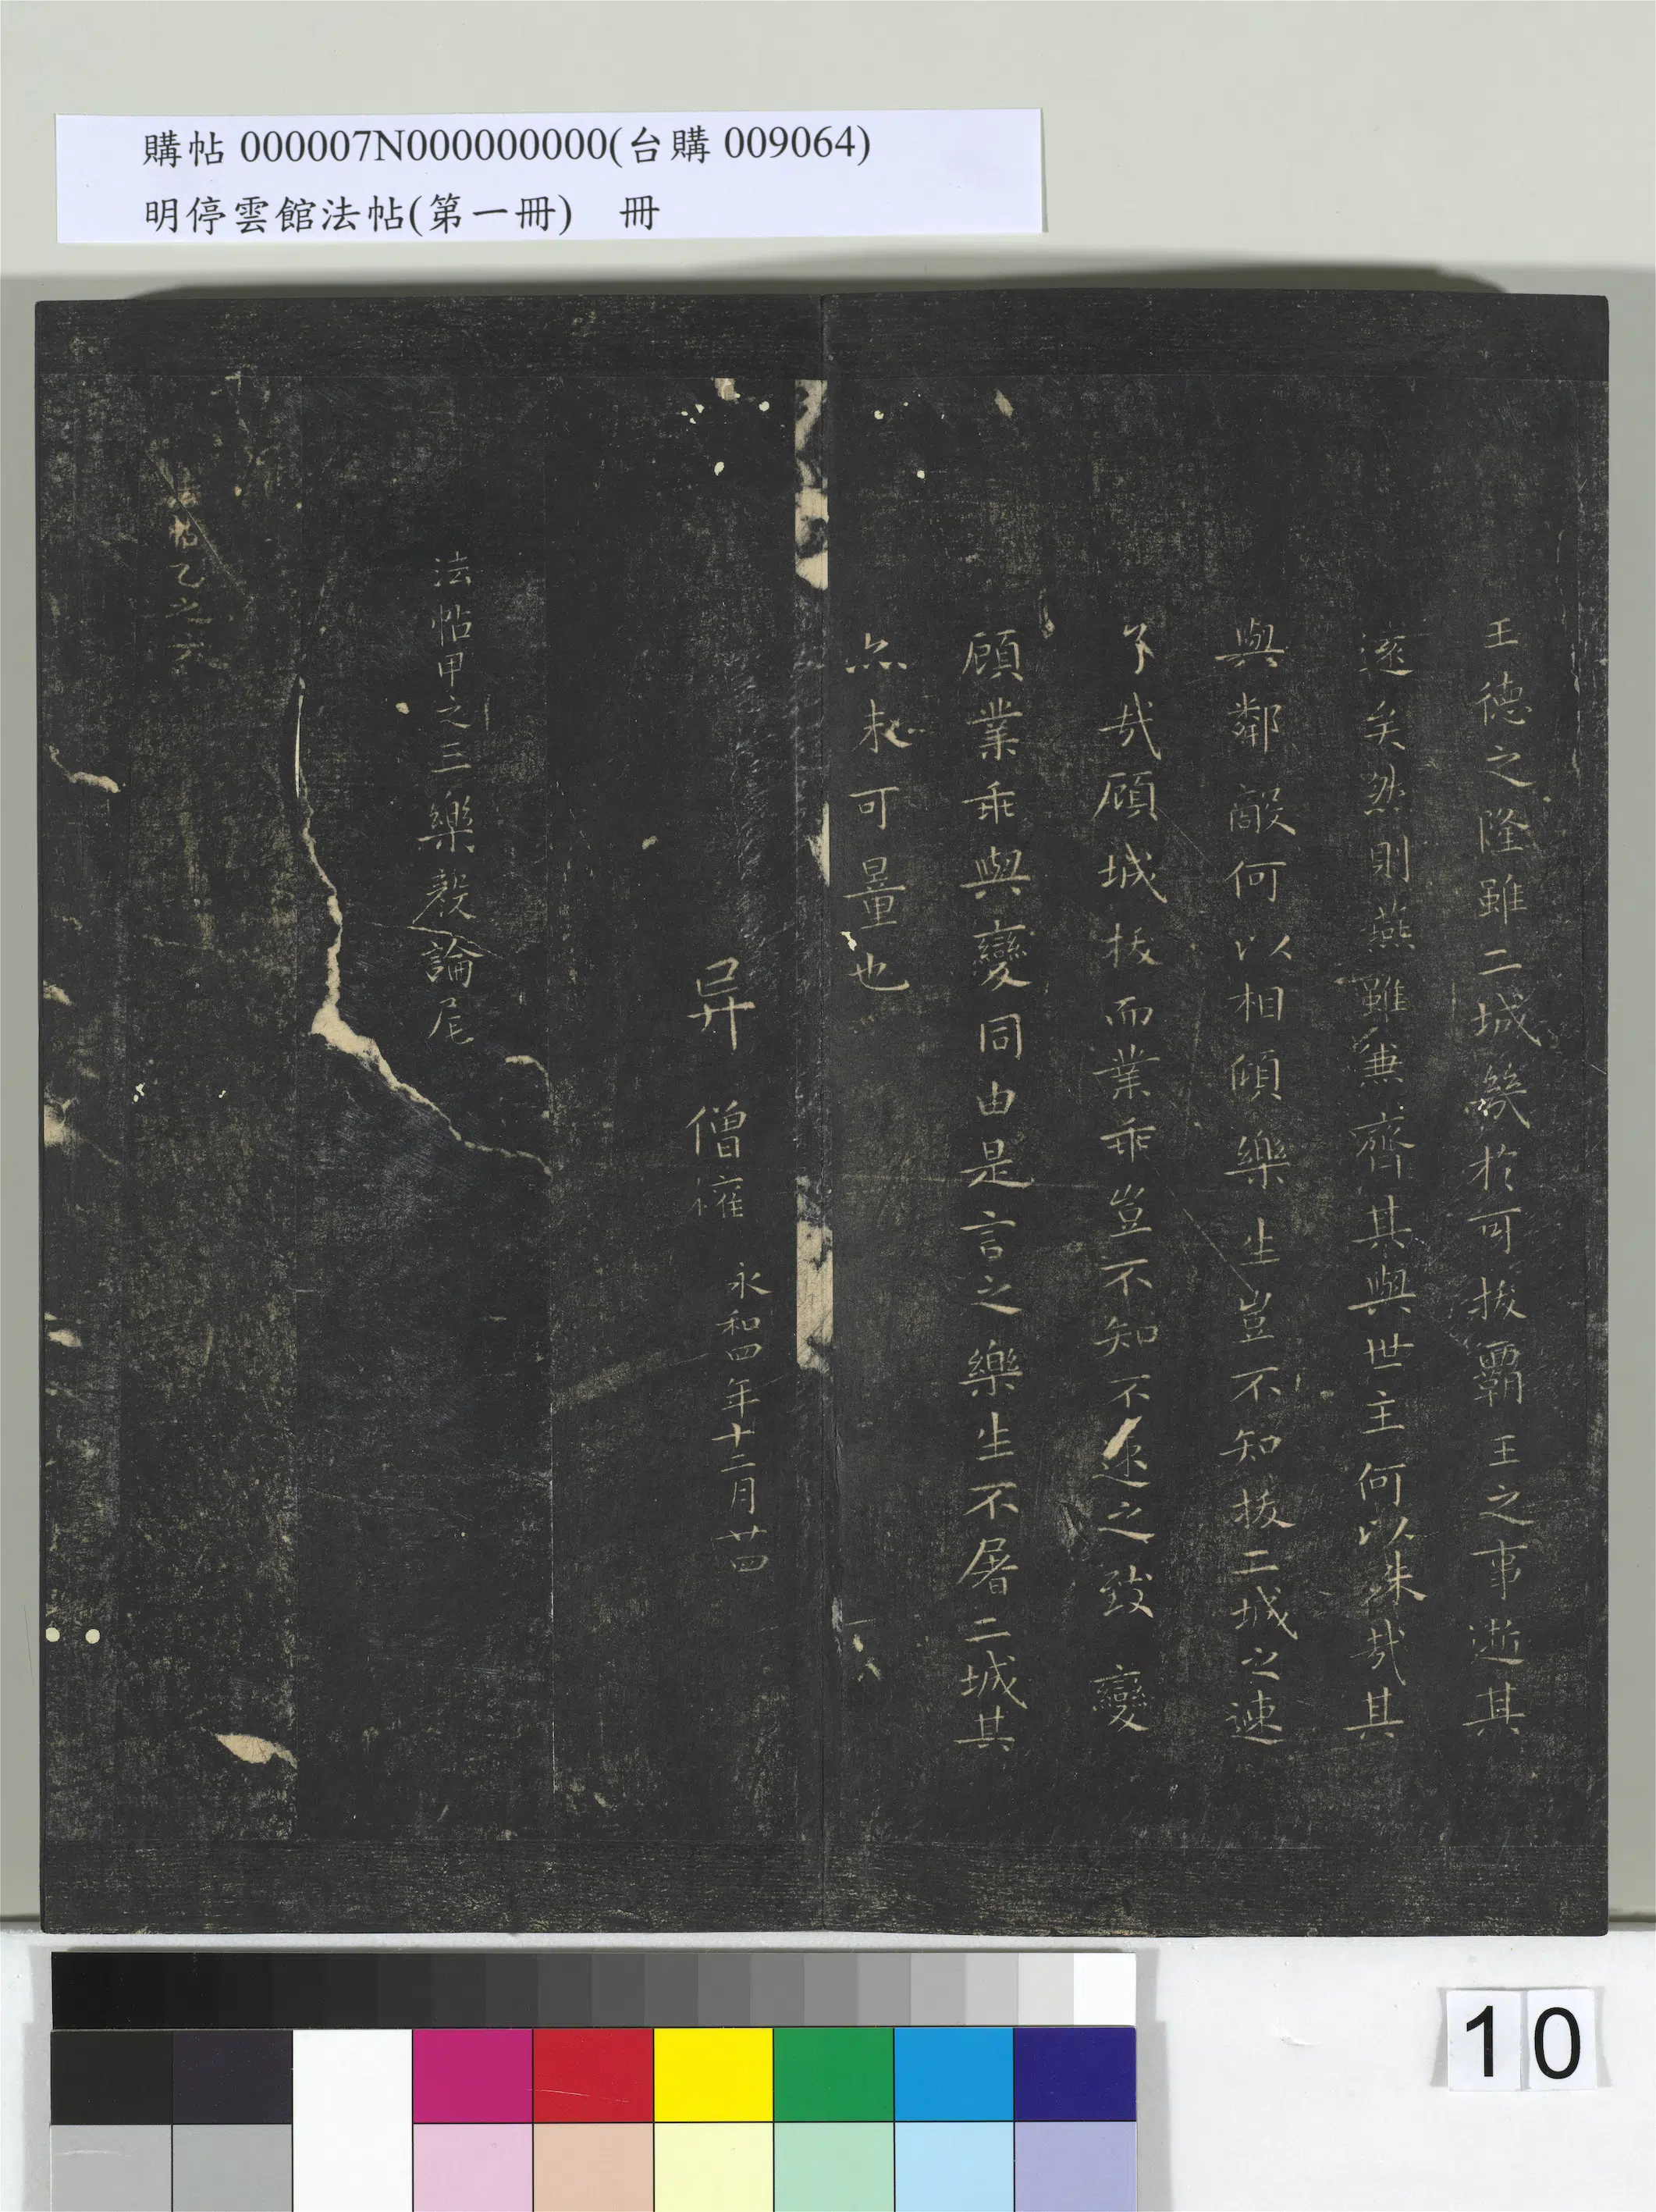 購帖 000007N000000000(台購 009064)
明停雲館法帖(第一冊) 冊
王德之隆雖二城幾於可拔霸王之事逝其
遠矣然則燕雖兼齊其與世主何以殊哉其
與鄰敵何以相傾樂生豈不知拔二城之速
了哉顧城拔而業乖豈不知不速之致變
顧業乖與變同由是言之樂生不屠二城其
亦未可量也
异 僧權
永和四年十二月廿四
法帖甲之三樂毅論尾
帖乙之六
10